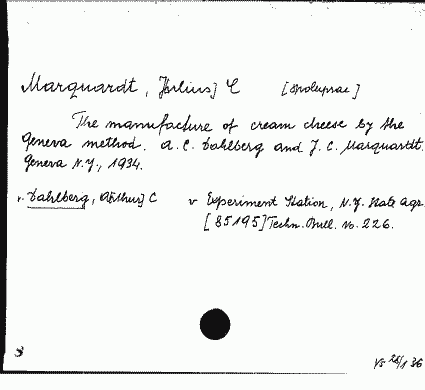 Marquardt, J[ulius] C [spoluprac]
The manufacture of cream cheese by the
Geneva method. A. C. Dahlberg and J. C. Marquardt.
Geneva N.Y., 1934.
v. Dahlberg, A[rthur] C v Experiment Station, N.Y. State Agr.
[85195] Techn. Bull. No. 226.